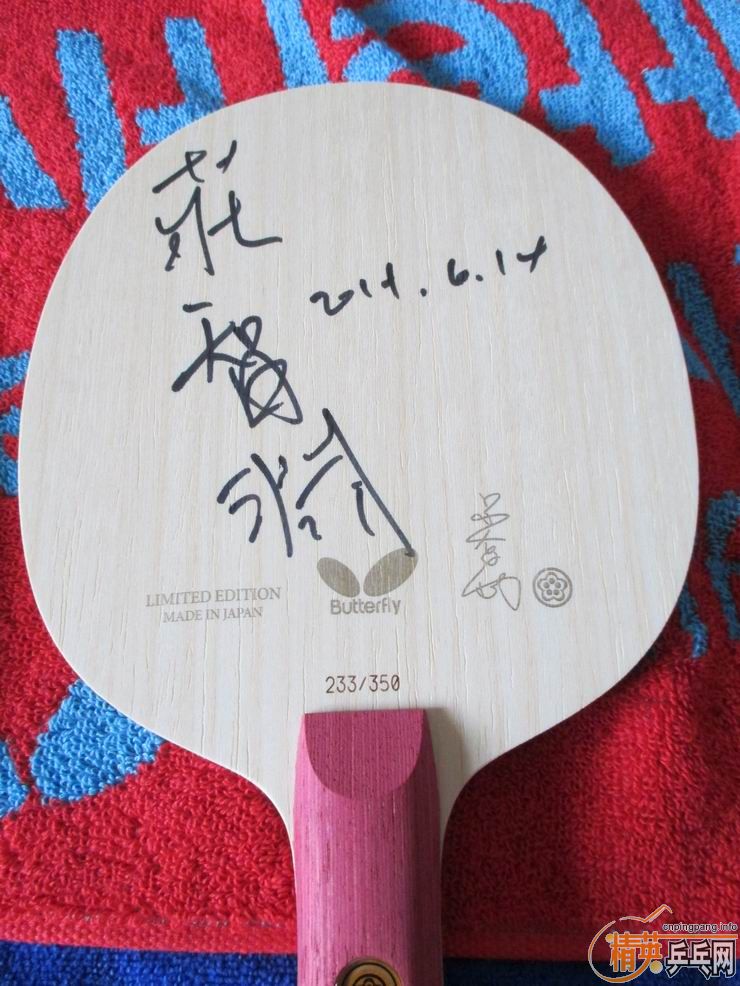 莊
智
淵
2014.6.14
LIMITED EDITION
MADE IN JAPAN
Butterfly
233/350
cnpingpang.info
精英乒乓网